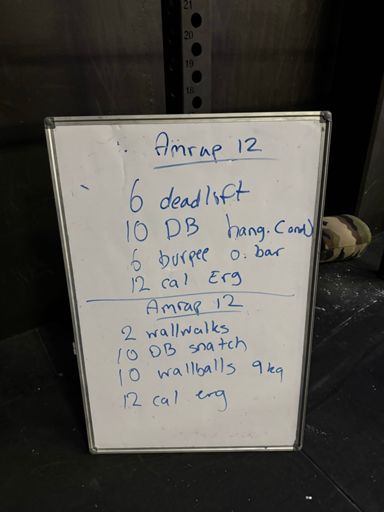 21
20
19
18
Amrap 12
6 deadlift
10 DB hang.
6 burpee o. bar
12 cal Erg
Amrap 12
2 wallwalks
10 DB snatch
10 wallballs 9kg
12 cal erg